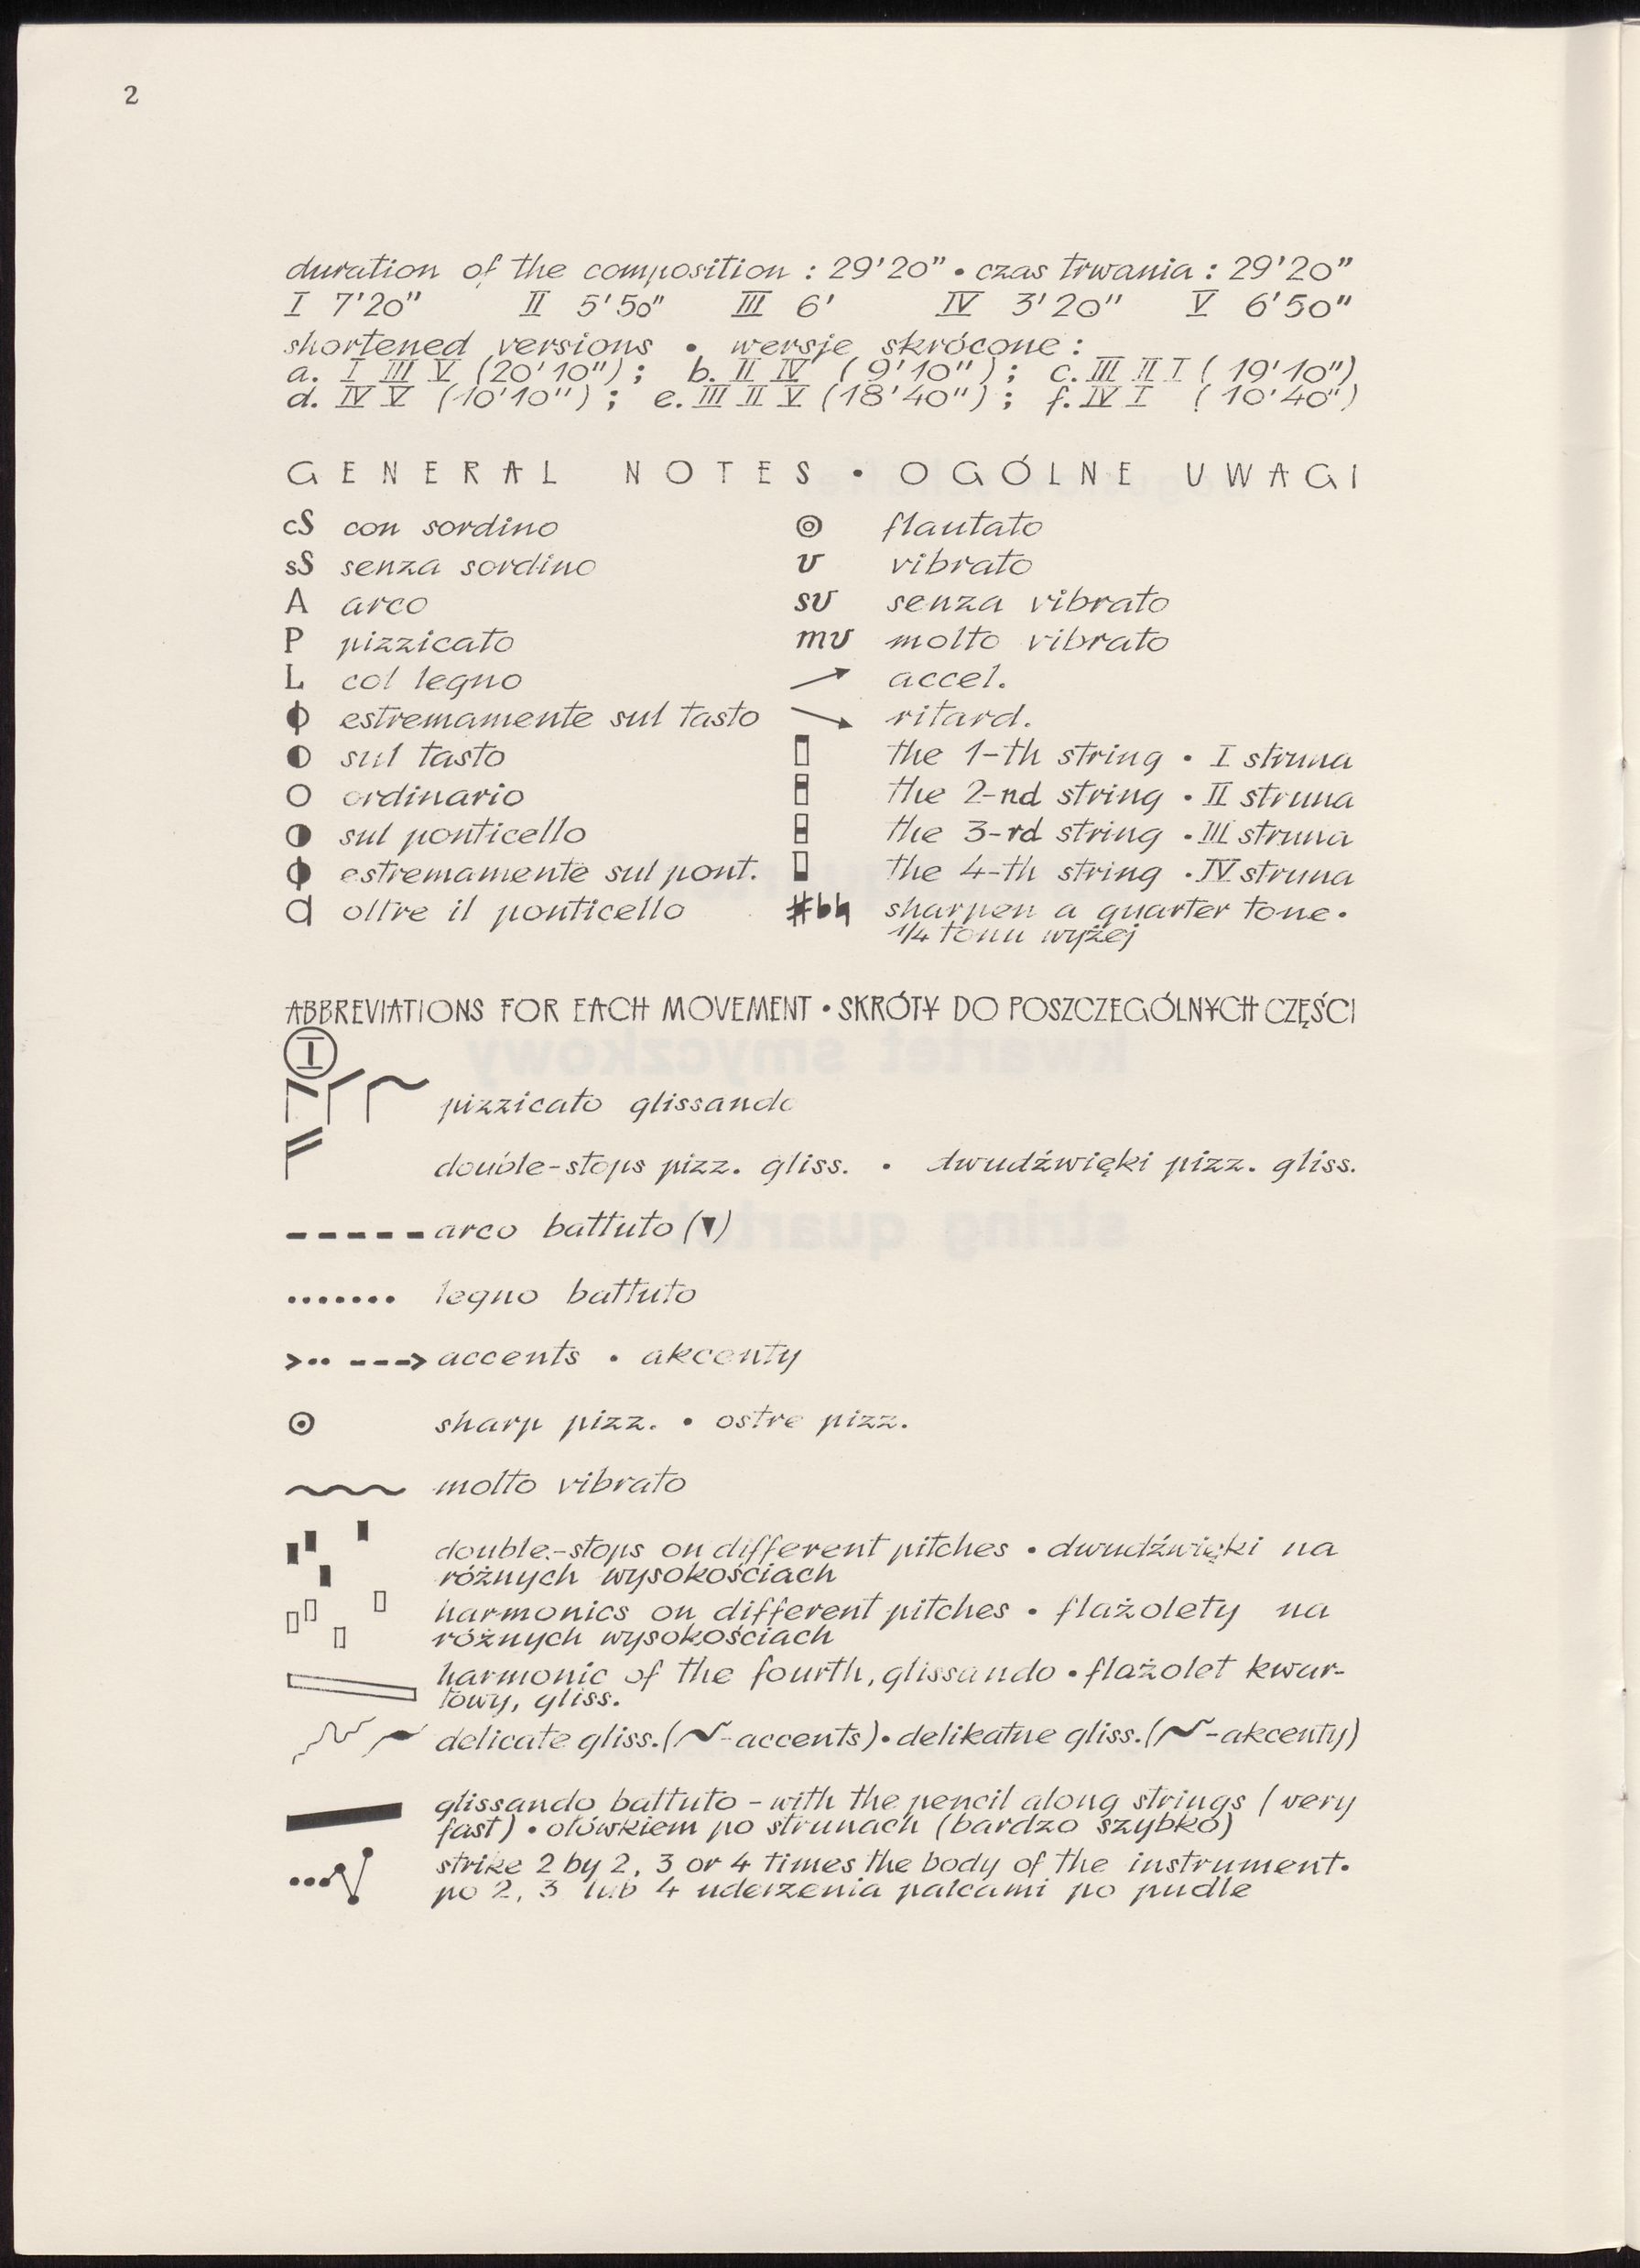 2
duration of the composition : 29'20" • czas trwania : 29'20"
I 7'20" II 5'50" III 6' IV 3'20" V 6'50"
shortened versions • wersje skrócone :
a. I III V (20'10") ; b. II IV (9'10") ; c. III II I (19'10")
d. IV V (10'10") ; e. III II V (18'40") ; f. IV I (10'40")
GENERAL NOTES • OGÓLNE UWAGI
cS con sordino flautato
sS senza sordino v vibrato
A arco sv senza vibrato
P pizzicato mv molto vibrato
L col legno accel.
estremamente sul tasto ritard.
sul tasto the 1-th string • I struna
ordinario the 2-nd string • II struna
sul ponticello the 3-rd string • III struna
estremamente sul pont. the 4-th string • IV struna
oltre il ponticello sharpen a quarter tone •
1/4 tonu wyżej
ABBREVIATIONS FOR EACH MOVEMENT • SKRÓTY DO POSZCZEGÓLNYCH CZĘŚCI
I
pizzicato glissando
double-stops pizz. gliss. • dwudźwięki pizz. gliss.
arco battuto (▼)
legno battuto
accents • akcenty
sharp pizz. • ostre pizz.
molto vibrato
double-stops on different pitches • dwudźwięki na
różnych wysokościach
harmonics on different pitches • flażolety na
różnych wysokościach
harmonic of the fourth, glissando • flażolet kwar-
towy, gliss.
delicate gliss. ( -accents) • delikatne gliss. ( -akcenty)
glissando battuto - with the pencil along strings (very
fast) • ołówkiem po strunach (bardzo szybko)
strike 2 by 2, 3 or 4 times the body of the instrument •
po 2, 3 lub 4 uderzenia palcami po pudle